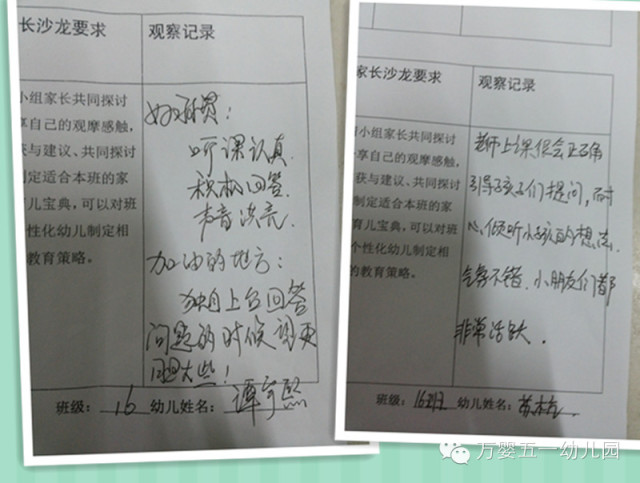 长沙龙要求
观察记录
小组家长共同探讨
享自己的观摩感触,
获与建议、共同探讨
制定适合本班的家
育儿宝典，可以对班
个性化幼儿制定相
教育策略。
好习惯：
听课认真
积极回答
声音洪亮
加油的地方：
独自上台回答
问题的时候望更
胆大些！
班级：16 幼儿姓名：谭宇熙
家长沙龙要求
观察记录
小组家长共同探讨
享自己的观摩感触,
获与建议、共同探讨
制定适合本班的家
育儿宝典，可以对班
个性化幼儿制定相
教育策略。
老师上课很会正确
引导孩子们提问，而耐
心倾听小孩的想法
不错、小朋友们都
非常活跃．
班级：16班 幼儿姓名：
万婴五一幼儿园